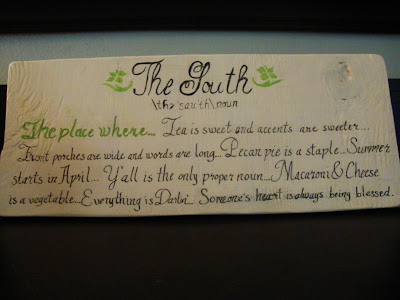 The South
\the 'sauth\noun
The place where... Tea is sweet and accents are sweeter...
Front porches are wide and words are long... Pecan pie is a staple... Summer
starts in April... Y'all is the only proper noun... Macaroni & Cheese
is a vegetable... Everything is Darlin'... Someone's heart is always being blessed.